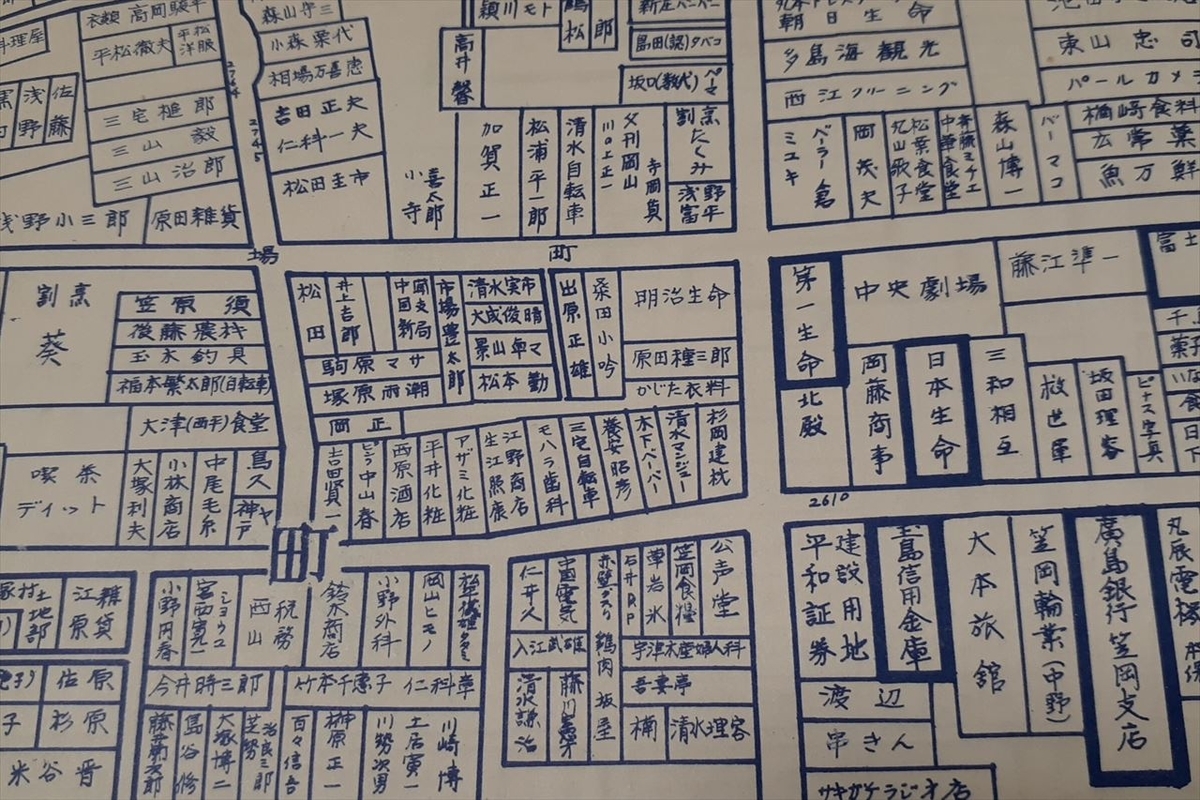 衣類
高岡駿平
料理屋
平松徹夫
平松洋服
浅野
佐藤
三宅槌郎
三山毅
三山治郎
浅野小三郎
原田雑貨
2764
2745
森山守三
小森栗代
相場万喜恵
吉田正夫
仁科一夫
松田圭市
小寺
喜太郎
頴川モト
鶴松
高井馨
島田(認)タバコ
坂口(数代)ペーマ
加賀正一
松浦平一郎
清水自転車
父刊岡山
川口正一
寺岡貨
割烹たくみ
浅野富平
朝日生命
多島海観光
西江クリーニング
ミユキ
ベーラー倉
岡茂夫
松葉食堂
丸山歌子
斉藤ミチエ
中華食堂
森山博一
バーマコ
東山忠司
パールカメラ
楢崎食料
広常薬
魚万鮮
場
町
割烹
葵
笠原須
後藤農杵
玉木釣具
福本繁太郎(自転車)
大津(西平)食堂
喫茶
デイット
大塚利夫
小林商店
中尾毛糸
鳥久
神戸ヤ
松田
井上吉郎
中国新聞支局
市場豊太郎
清水実市
大成俊晴
景山卓マ
松本勤
駒原マサ
塚原雨潮
岡正
出原正雄
桑田小吟
明治生命
原田種三郎
かじた衣料
吉田賢一
中山春
西原酒店
平井化粧
アザミ化粧
江野商店
生江照康
モハラ歯科
三宅自転車
養安昭彦
木下ペーパー
清水マンジュー
杉岡建枕
第一生命
北殿
中央劇場
藤江準一
富士
岡藤商事
日本生命
三和相互
救世軍
坂田理容
ビナス写真
菓子
日下
2610
町
土地部
江原雑貨
佐原
杉原
米谷晋
小野円春
宮西寛一
西山
税務
鈴木商店
小野外科
岡山ヒモノ
今井時三郎
竹本千恵子
仁科章
藤井菊次郎
島谷修
大塚博二
芝勢治良三郎
百々信吾
榊原正一
川勢次男
土居寅一
川崎博
仁井久
中国電気
赤壁グスリ
鶏肉
坂屋
石井RP
草岩氷
笠岡食糧
公声堂
入江武雄
宇津木産婦人科
清水謙治
吾妻亭
楠
清水理容
建設用地
平和証券
玉島信用金庫
大本旅館
笠岡輪業(中野)
廣島銀行笠岡支店
丸辰電機
渡辺
串さん
サキガケラジオ店